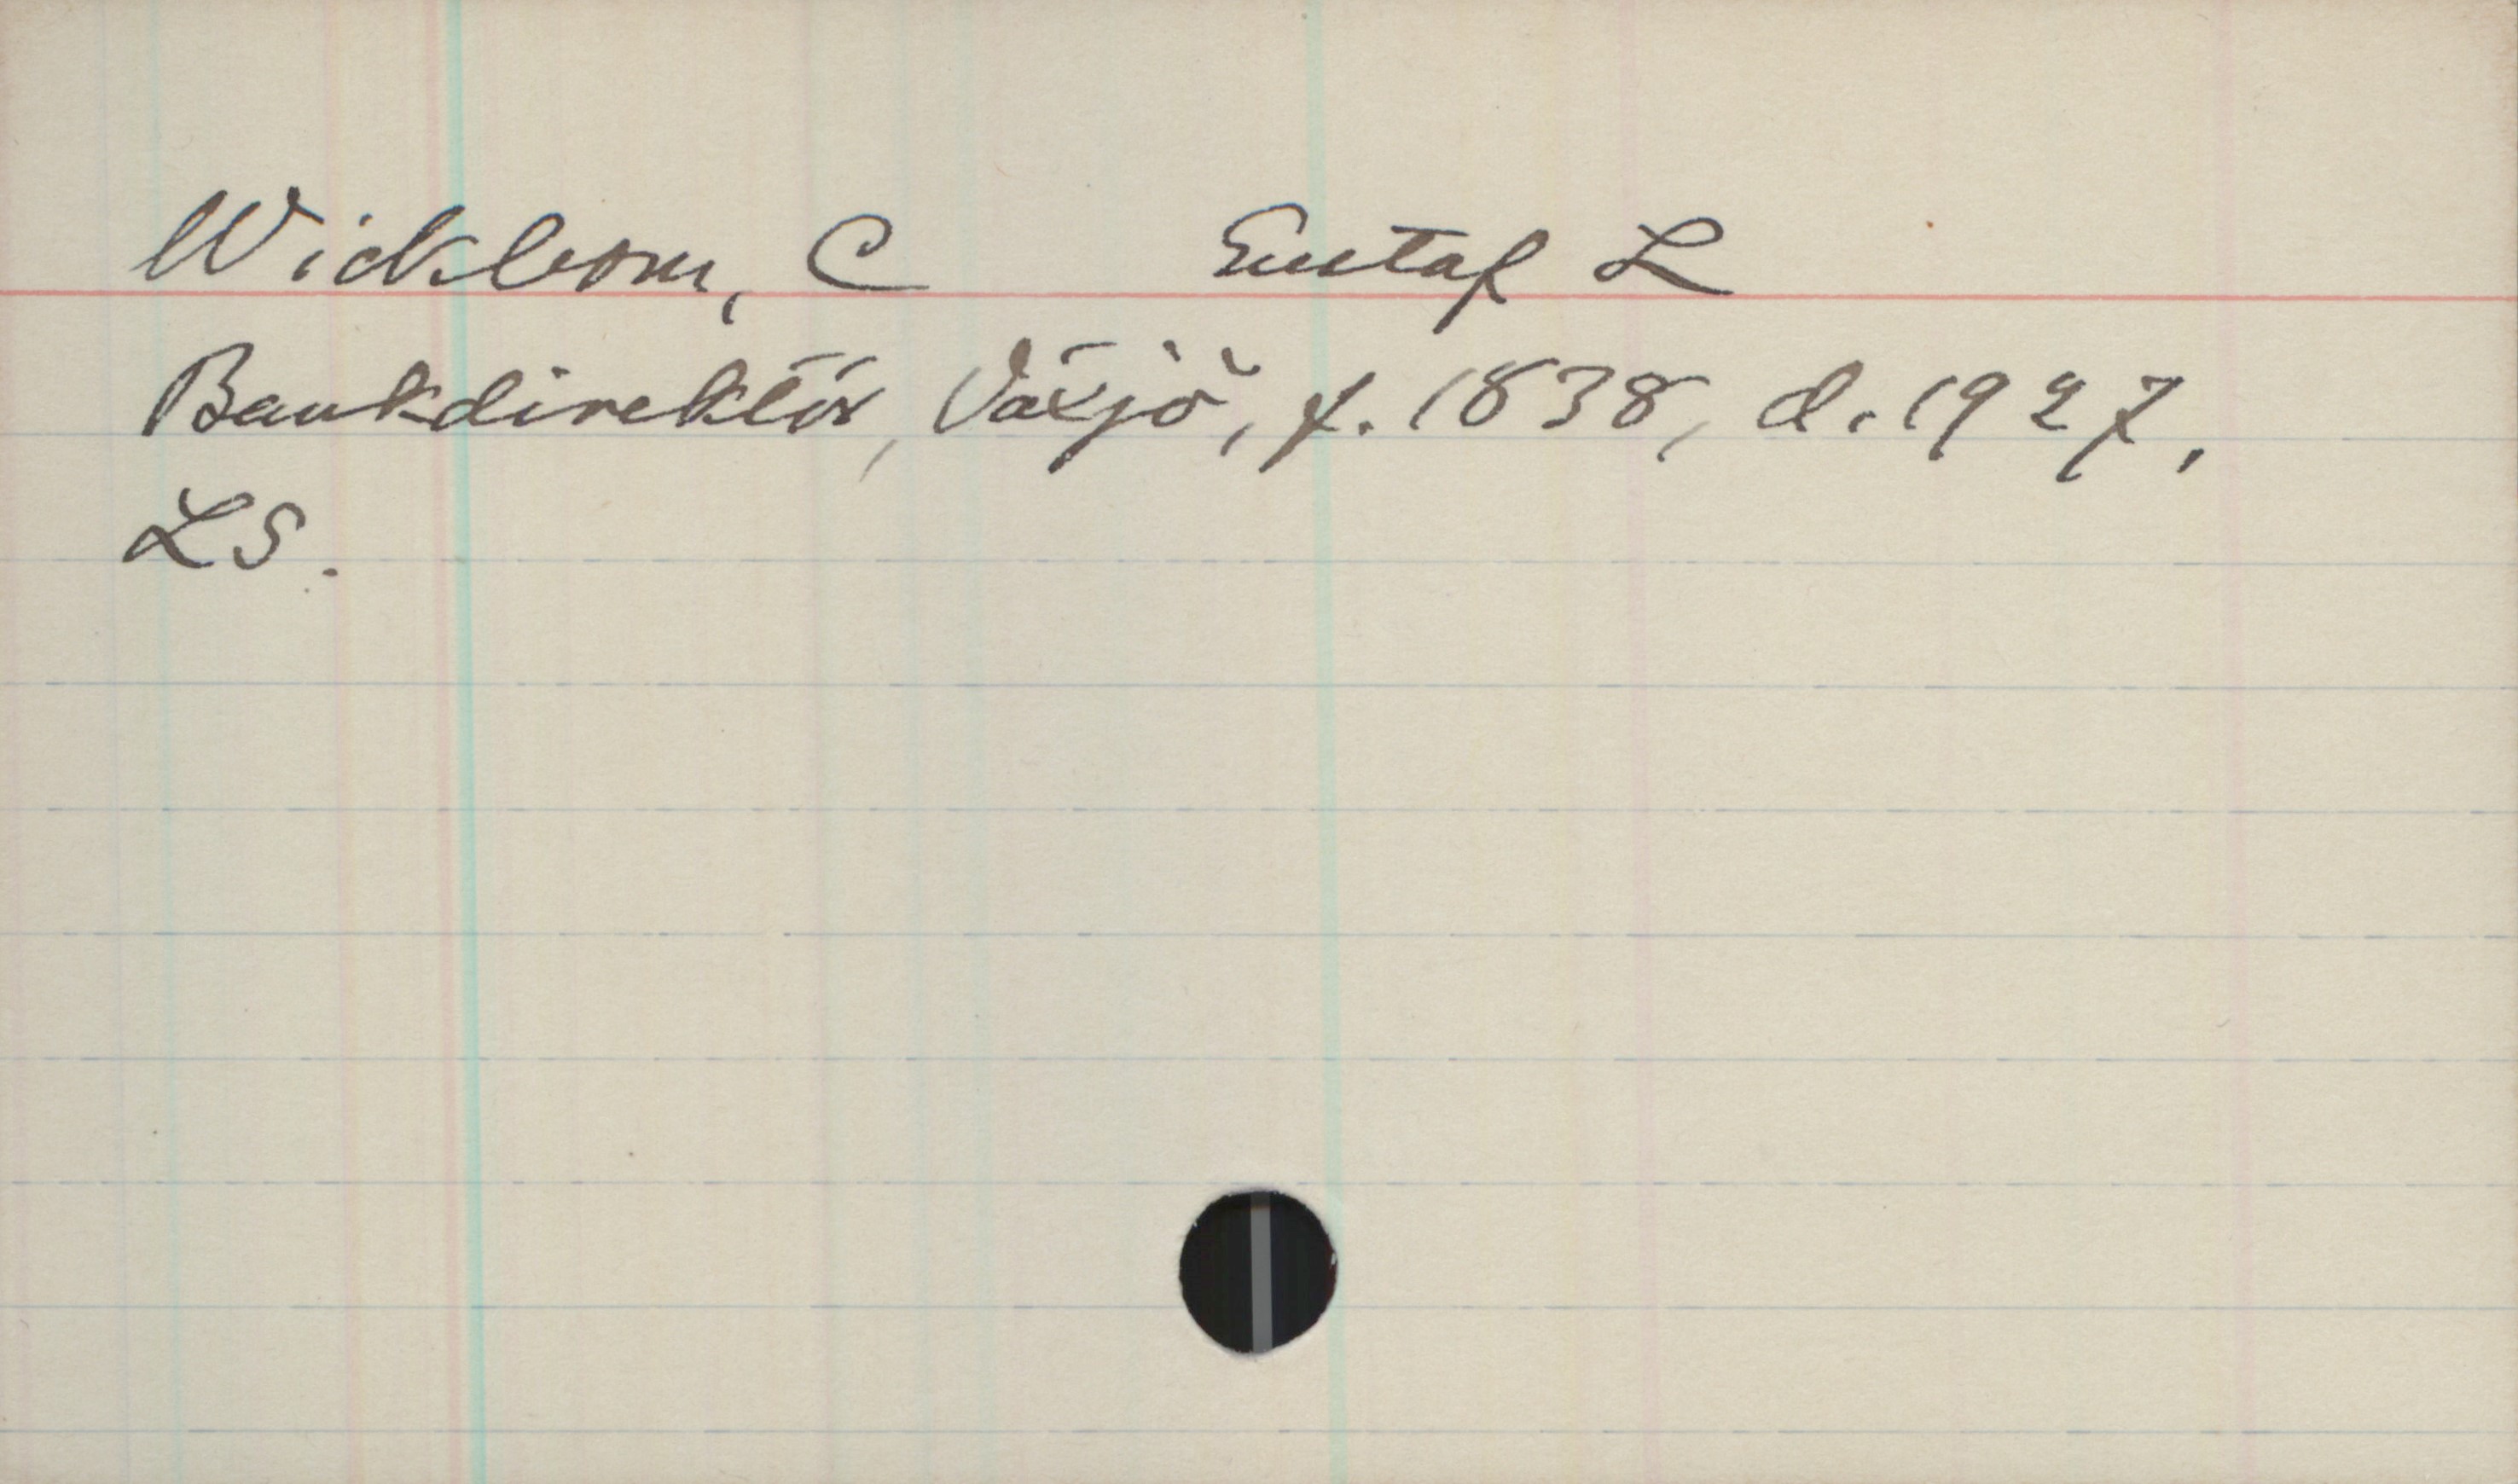 Wickbom, C Gustaf L
Bankdirektör, Växjö, f. 1838, d. 1927,
LS.